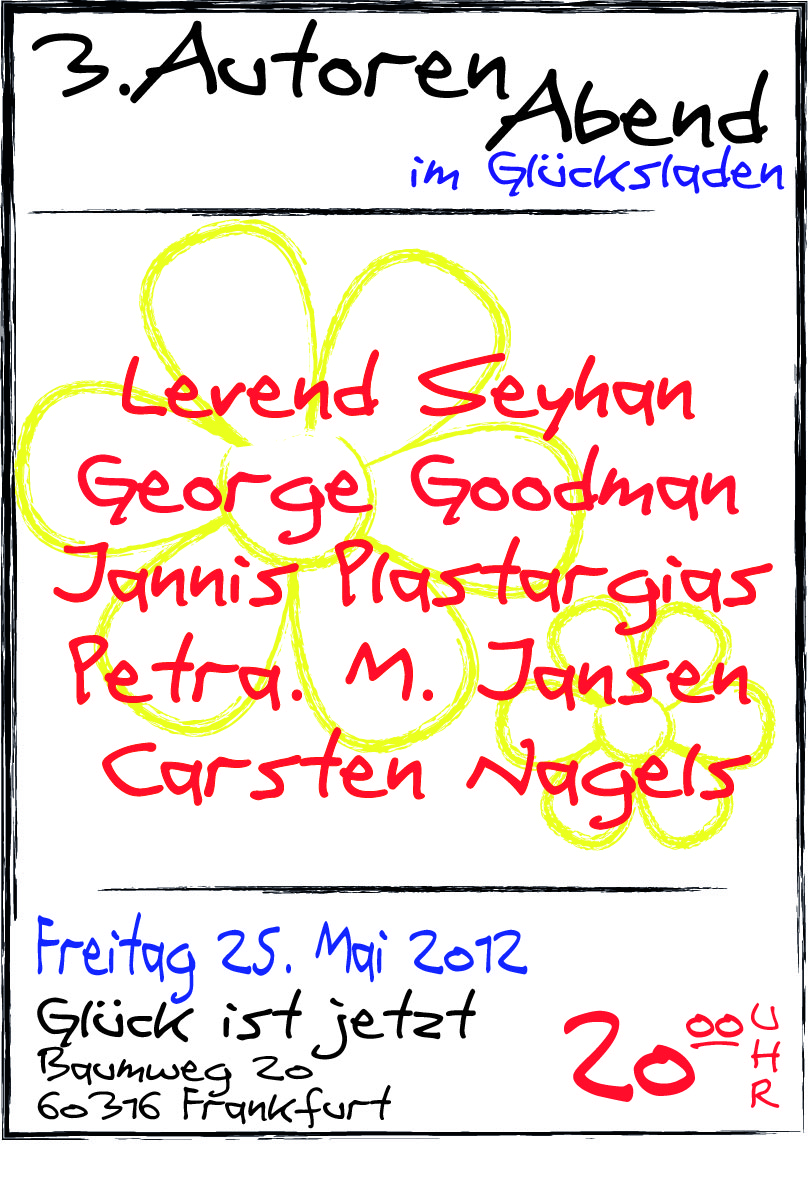 3. Autoren
Abend
im Glücksladen
Levend Seyhan
George Goodman
Jannis Plastargias
Petra. M. Jansen
Carsten Nagels
Freitag 25. Mai 2012
Glück ist jetzt
Baumweg 20
60316 Frankfurt
20 00 UHR